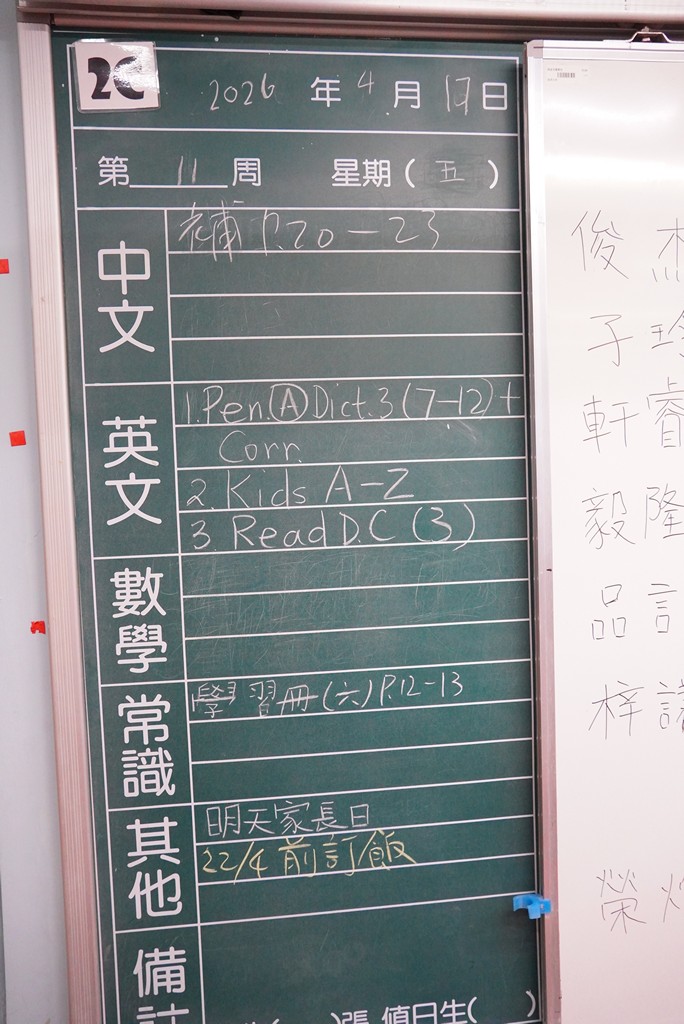 2C
2026 年 4 月 17 日
第 11 周 星期 ( 五 )
中文
補 P.20 - 23
英文
1. Pen. Ⓐ Dict. 3 (7-12) +
Corr.
2. Kids A - Z
3. Read D.C (3)
數學
常識
學習冊 (六) P.12-13
其他
明天家長日
22/4 前訂飯
備註
張 值日生( )
俊杰
子
軒睿
毅隆
品言
梓
榮